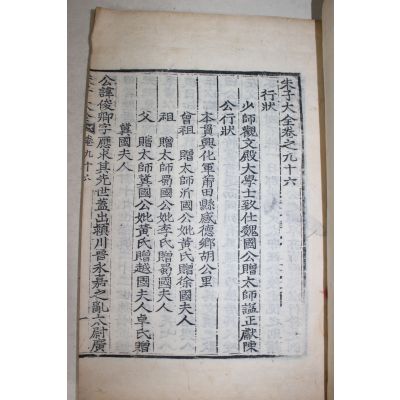 朱子大全卷之九十六
行狀
少師觀文殿大學士致仕魏國公贈太師謚正獻陳
公行狀
本貫興化軍莆田縣感德鄉胡公里
曾祖 贈太師沂國公妣黃氏贈徐國夫人
祖 贈太師蜀國公妣李氏贈蜀國夫人
父 贈太師冀國公妣黃氏贈越國夫人卓氏贈
冀國夫人
公諱俊卿字應求其先世蓋出潁川晉永嘉之亂太尉廣
朱子大全 卷九十六